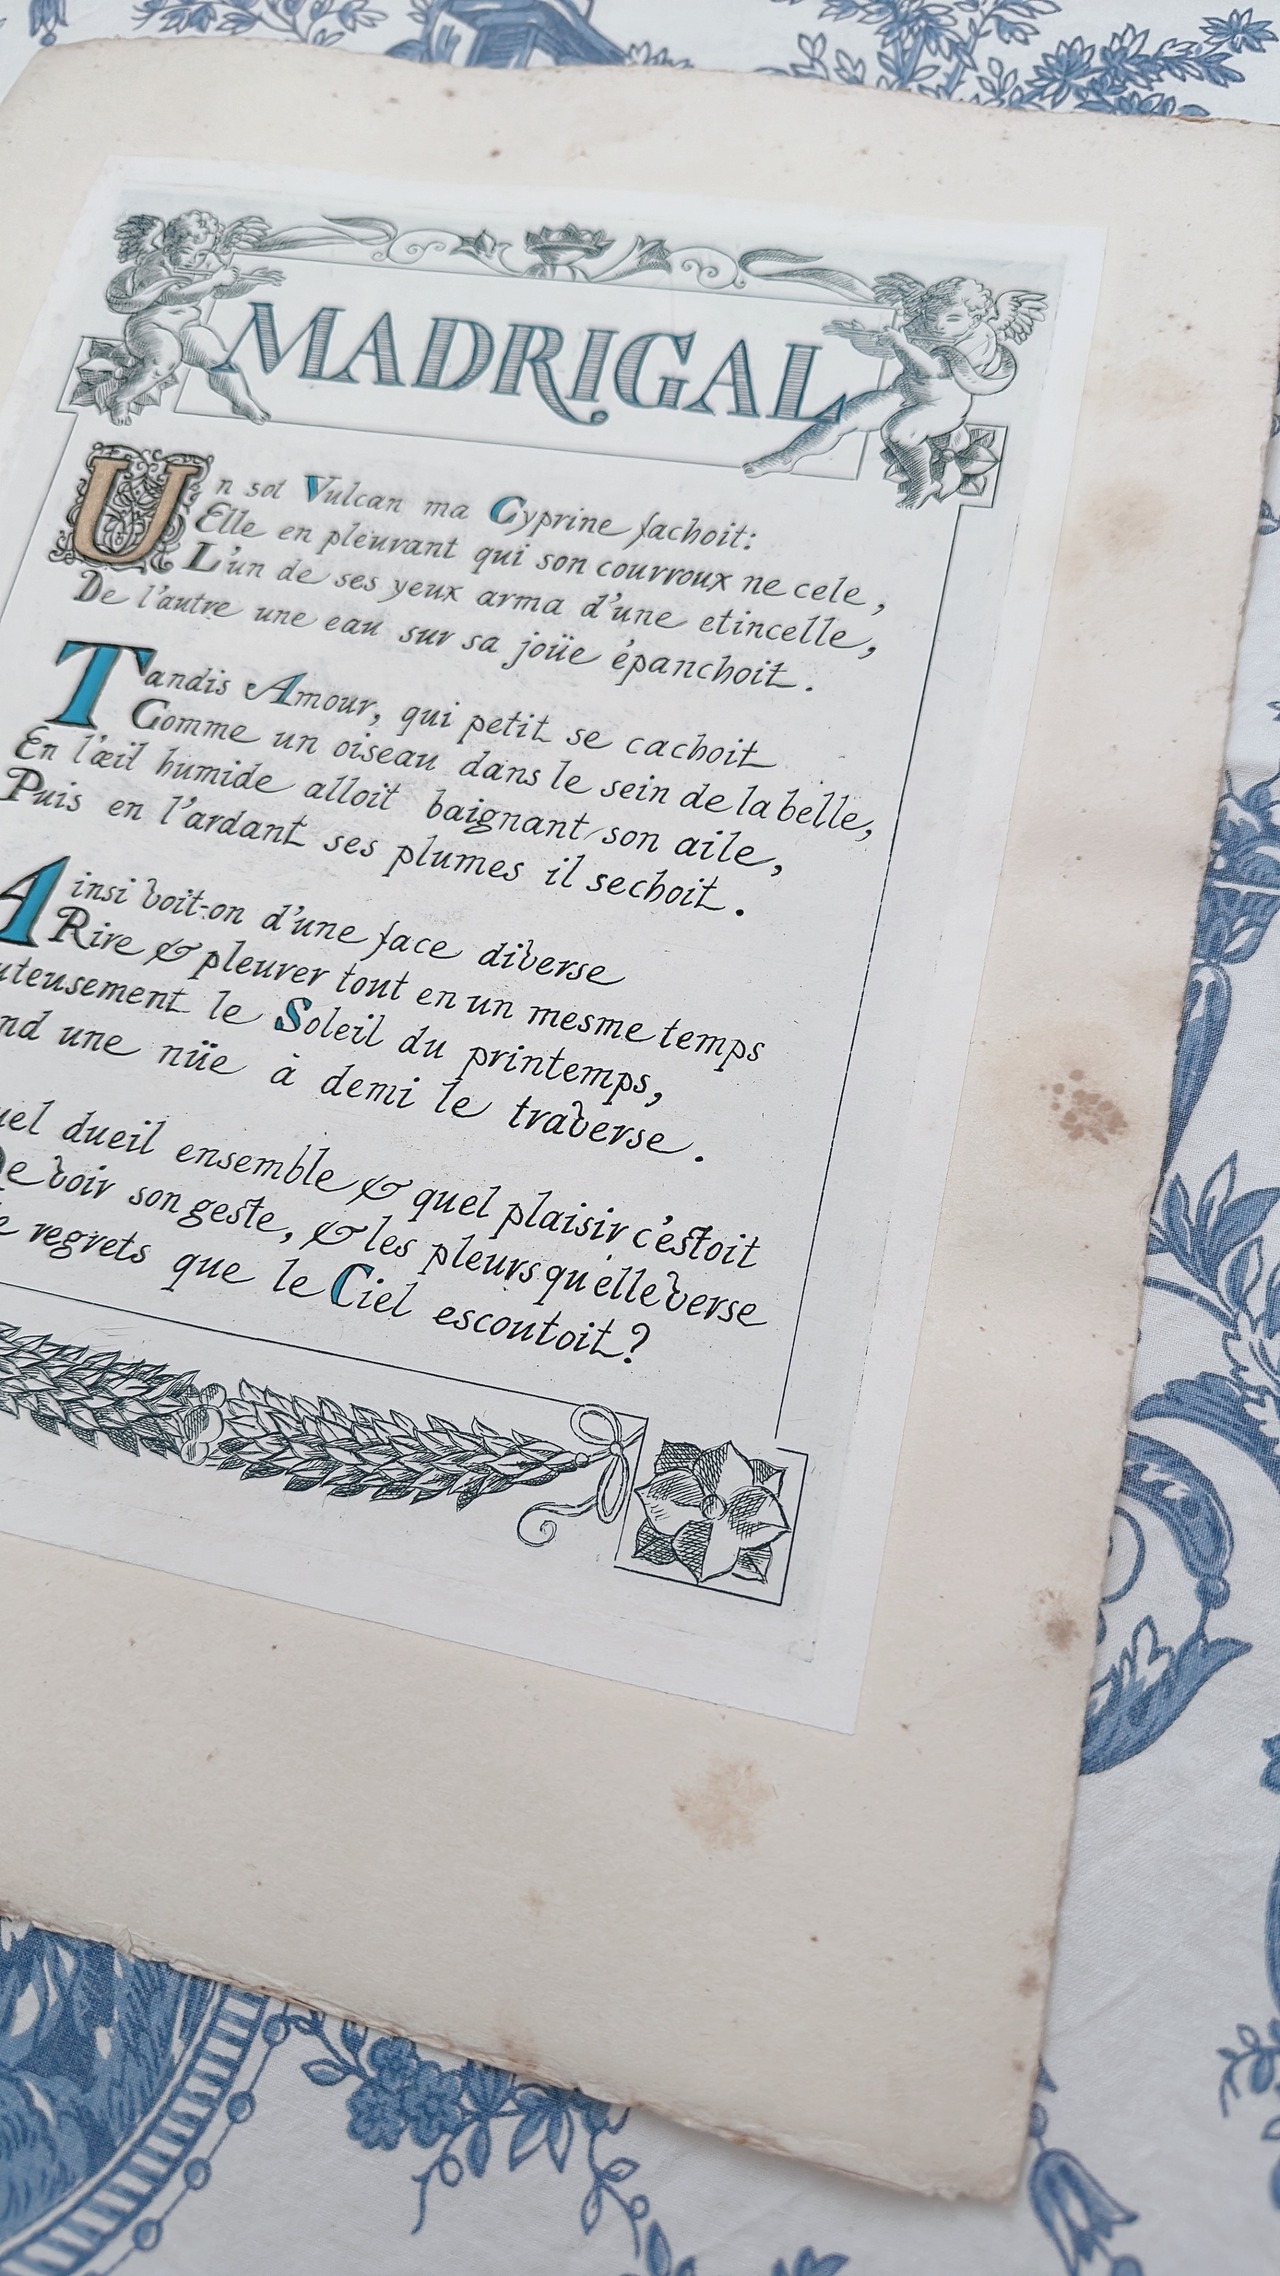 MADRIGAL
Un sot Vulcan ma Cyprine fachoit:
Elle en pleuvant qui son courroux ne cele,
L'un de ses yeux arma d'une etincelle,
De l'autre une eau sur sa joüe épanchoit.
Tandis Amour, qui petit se cachoit
Comme un oiseau dans le sein de la belle,
En l'œil humide alloit baignant son aile,
Puis en l'ardant ses plumes il sechoit.
Ainsi voit-on d'une face diverse
Rire & pleurer tout en un mesme temps
uteusement le Soleil du printemps,
nd une nüe à demi le traverse.
uel dueil ensemble & quel plaisir c'estoit
De voir son geste, & les pleurs qu'elle verse
e regrets que le Ciel escoutoit?